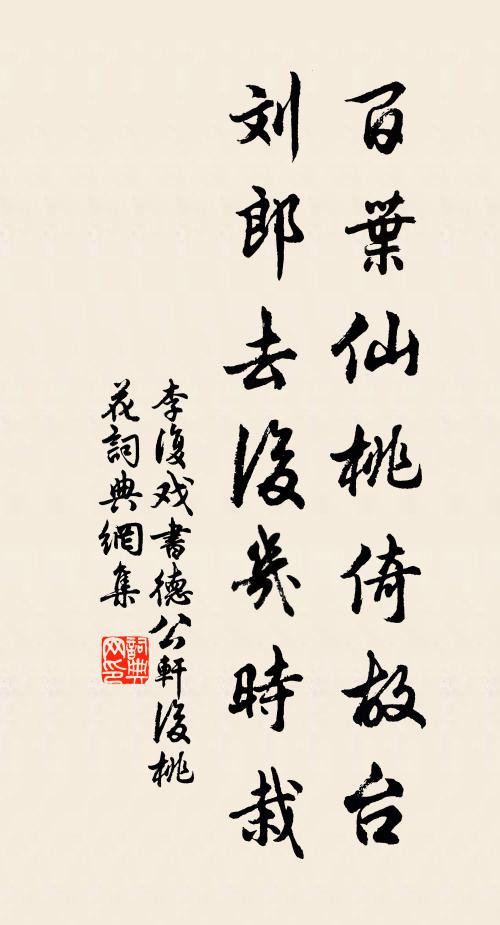 百葉仙桃倚故台
刘郎去後幾時栽
李復戏書德公軒後桃
花詞典網集
詞典
网印